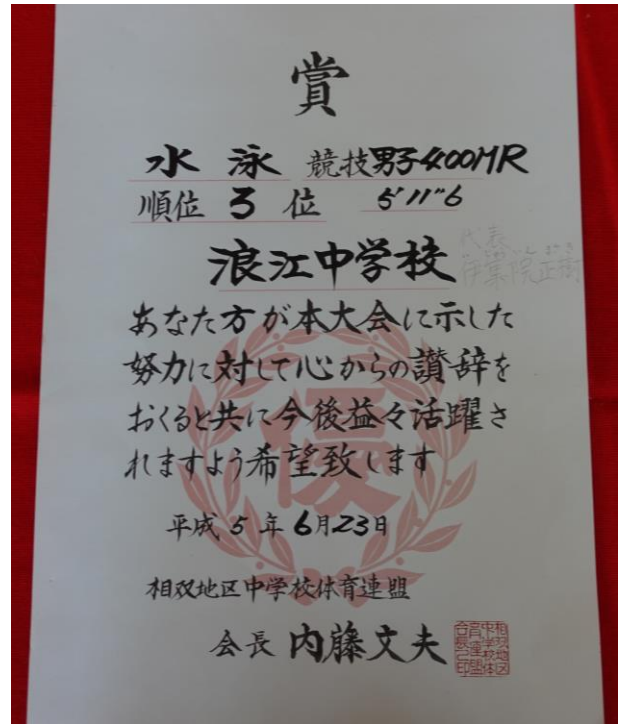 賞
水泳 競技男子400MR
順位 3 位 5'11"6
浪江中学校
代表
伊葉院正樹
あなた方が本大会に示した
努力に対して心からの讃辞を
おくると共に今後益々活躍さ
れますよう希望致します
優
平成5年6月23日
相双地区中学校体育連盟
会長 内藤文夫
相双地区
中学校体
育連盟
会長之印